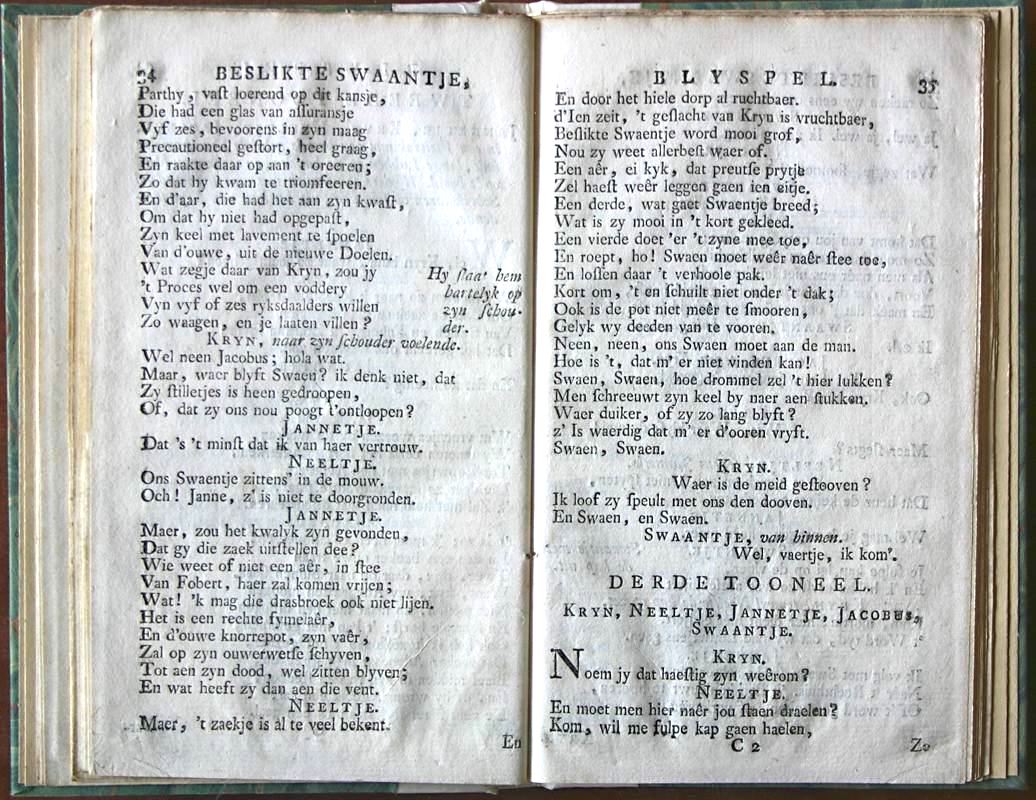 34 BESLIKTE SWAANTJE,
Parthy, vaſt loerend op dit kansje,
Die had een glas van aſſuransje
Vyf zes, bevoorens in zyn maag
Precautioneel geſtort, heel graag,
En raakte daar op aan 't oreeren;
Zo dat hy kwam te triomfeeren.
En d'aar, die had het aan zyn kwaſt,
Om dat hy niet had opgepaſt,
Zyn keel met lavement te ſpoelen
Van d'ouwe, uit de nieuwe Doelen.
Wat zegje daar van Kryn, zou jy
't Proces wel om een voddery
Vyn vyf of zes ryksdaalders willen
Zo waagen, en je laaten villen?
Hy ſlaat hem
hartelyk op
zyn ſchou-
der.
KRYN, naar zyn ſchouder voelende.
Wel neen Jacobus; hola wat.
Maar, waer blyft Swaen? ik denk niet, dat
Zy ſtilletjes is heen gedroopen,
Of, dat zy ons nou poogt t'ontloopen?
JANNETJE.
Dat 's 't minſt dat ik van haer vertrouw.
NEELTJE.
Ons Swaentje zittens' in de mouw.
Och! Janne, z' is niet te doorgronden.
JANNETJE.
Maer, zou het kwalyk zyn gevonden,
Dat gy die zaek uitſtellen dee?
Wie weet of niet een aêr, in ſtee
Van Fobert, haer zal komen vrijen;
Wat! 'k mag die drasbroek ook niet lijen.
Het is een rechte fymelaêr,
En d'ouwe knorrepot, zyn vaêr,
Zal op zyn ouwerwetſe ſchyven,
Tot aen zyn dood, wel zitten blyven;
En wat heeft zy dan aen die vent.
NEELTJE.
Maer, 't zaekje is al te veel bekent.
En
BLYSPEL. 35
En door het hiele dorp al ruchtbaer.
d'Ien zeit, 't geſlacht van Kryn is vruchtbaer,
Beſlikte Swaentje word mooi grof,
Nou zy weet allerbeſt waer of.
Een aêr, ei kyk, dat preutſe prytje
Zel haeſt weêr leggen gaen ien eitje.
Een derde, wat gaet Swaentje breed;
Wat is zy mooi in 't kort gekleed.
Een vierde doet 'er 't zyne mee toe,
En roept, ho! Swaen moet weêr naêr ſtee toe,
En loſſen daar 't verhoole pak.
Kort om, 't en ſchuilt niet onder 't dak;
Ook is de pot niet meêr te ſmooren,
Gelyk wy deeden van te vooren.
Neen, neen, ons Swaen moet aen de man.
Hoe is 't, dat m' er niet vinden kan!
Swaen, Swaen, hoe drommel zel 't hier lukken?
Men ſchreeuwt zyn keel by naer aen ſtukken.
Waer duiker, of zy zo lang blyft?
z' Is waerdig dat m' er d'ooren vryft.
Swaen, Swaen.
KRYN.
Waer is de meid geſtooven?
Ik loof zy ſpeult met ons den dooven.
En Swaen, en Swaen.
SWAANTJE, van binnen.
Wel, vaertje, ik kom'.
DERDE TOONEEL.
KRYN, NEELTJE, JANNETJE, JACOBUS,
SWAANTJE.
KRYN.
Noem jy dat haeſtig zyn weêrom?
NEELTJE.
En moet men hier naêr jou ſtaen draelen?
Kom, wil me fulpe kap gaen haelen,
C 2 Zo